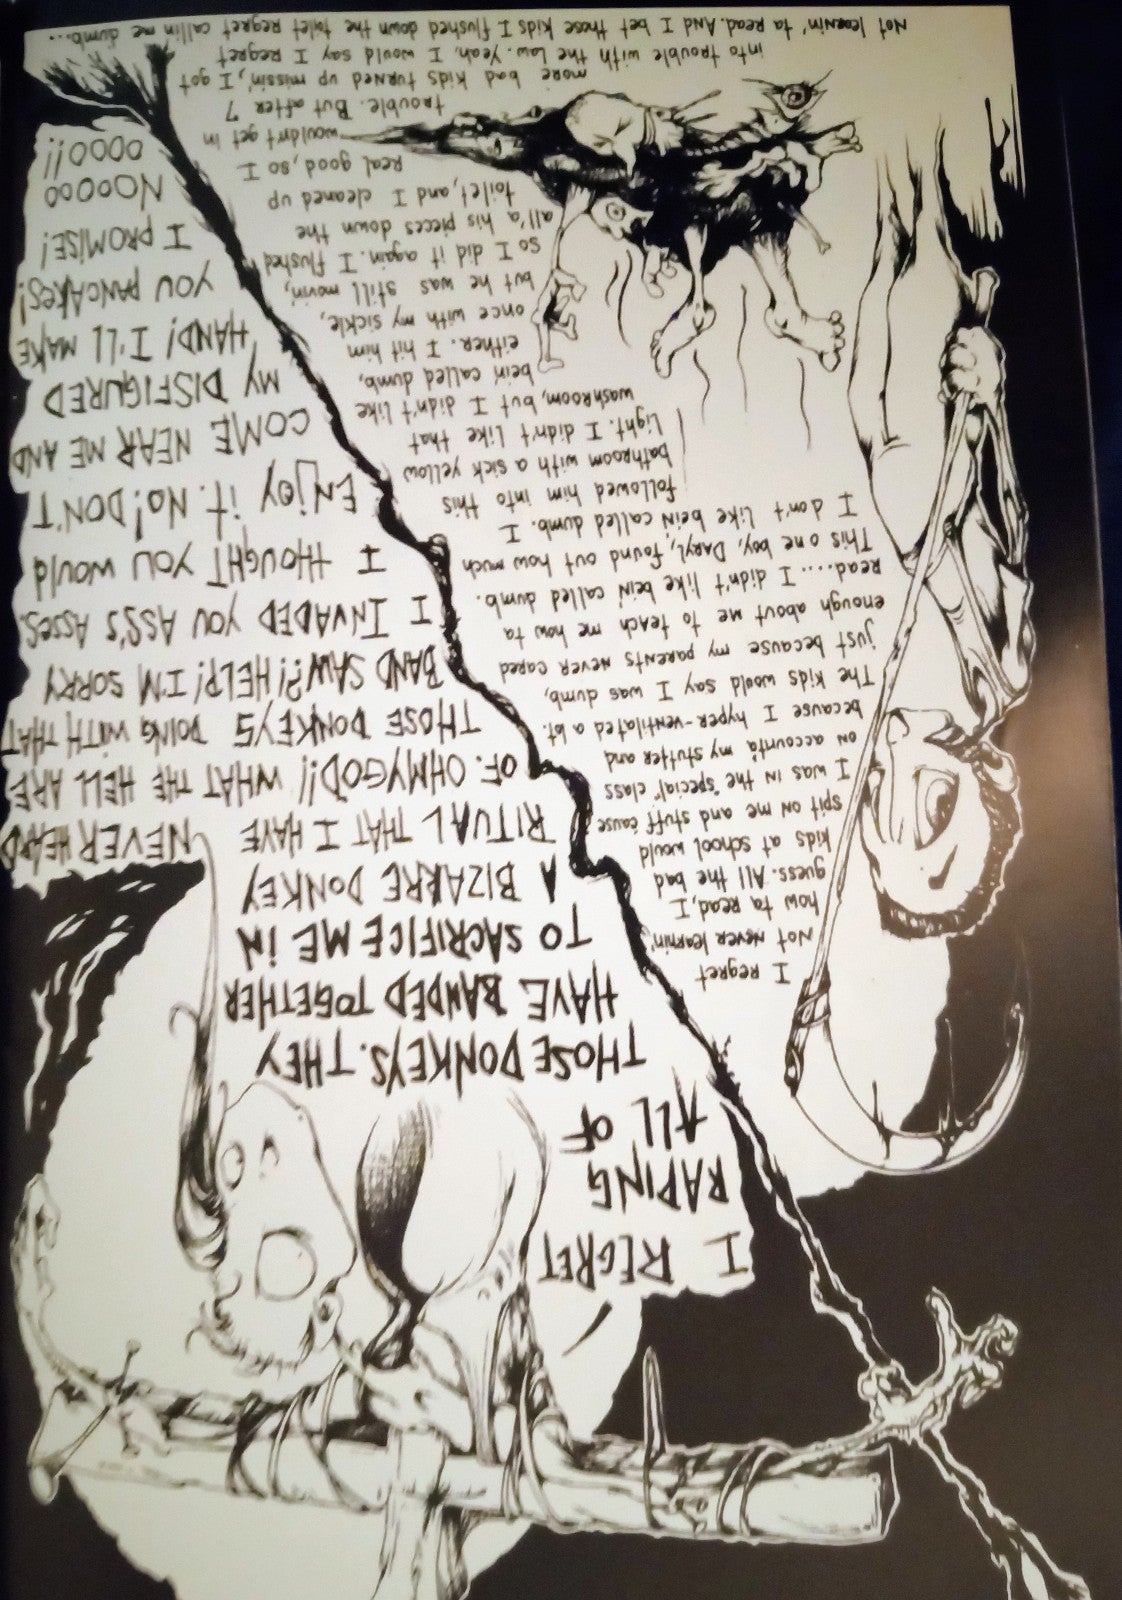 I REGRET
RAPING
ALL OF
THOSE DONKEYS. THEY
HAVE BANDED TOGETHER
TO SACRIFICE ME iN
A BIZARRE DONKEY
RITUAL THAT I HAVE NEVER HEARD
OF. OHMYGOD!! WHAT THE HELL ARE
THOSE DONKEYS DOING WITH THAT
BAND SAW?! HELP! I'M SORRY
I INVADED YOU ASS'S ASSES.
I THOUGHT YOU WOULD
ENJOY iT. NO! DON'T
COME NEAR ME AND
MY DISFIGURED
HAND! I'LL MAKE
YOU PANCAKES!
I PROMISE!
NOoooo
oooo!!
I regret
Not never learnin'
how ta read, I
guess. All the bad
kids at school would
spit on me and stuff cause
I was in the "special" class
on accounta my stutter and
because I hyper-ventilated a lot.
The kids would say I was dumb,
just because my parents never cared
enough about me to teach me how ta
Read.... I didn't like bein' called dumb.
This one boy, Daryl, found out how much
I don't like bein called dumb. I
followed him into this
bathroom with a sick yellow
light. I didn't like that
washroom, but I didn't like
bein' called dumb,
either. I hit him
once with my sickle,
but he was still movin',
so I did it again. I flushed
all'a his pieces down the
toilet, and I cleaned up
real good, so I
wouldn't get in
trouble. But after 7
more bad kids turned up missin', I got
into trouble with the law. Yeah, I would say I regret
Not learnin' ta Read. And I bet those kids I flushed down the toilet regret callin me dumb...